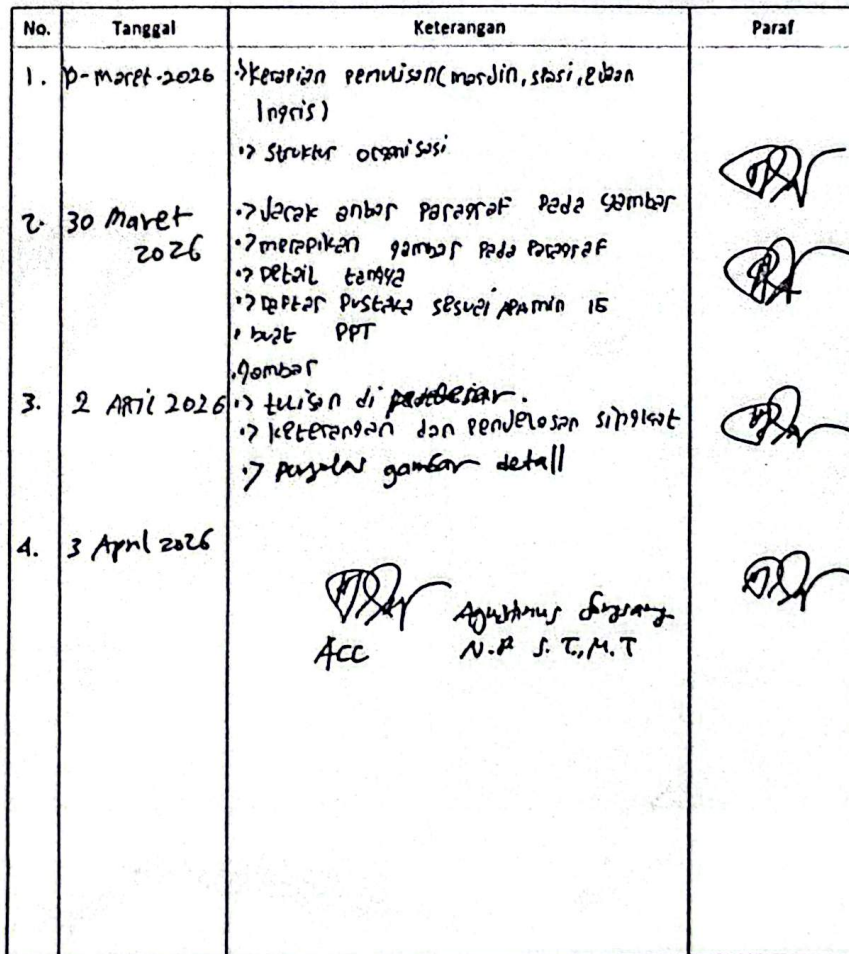 No. Tanggal Keterangan Paraf
1. Maret-2026 •> Kerapian penulisan (mardin, spasi, ejaan
Ingris)
•> Struktur organisasi
2. 30 Maret •> Jarak antar Paragraf Pada gambar
2026 •> merapikan gambar Pada Paragraf
•> Detail
•> Daftar Pustaka sesuai min 15
• buat PPT
• gambar
3. 2 April 2026 •> tulisan di
•> Keterangan dan penjelasan singkat
•> gambar detail
4. 3 April 2026
Agustinus
ACC S.T., M.T